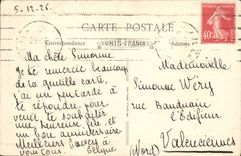 5.12.26.
CARTE POSTALE
Correspondance
UNIS-FRANCE
40c
Ma chère Simonne
Je te remercie beaucoup
de ta gentille carte,
j'ai un peu tardé à
te répondre, pour
venir te souhaiter
une heureuse fête et
un joie anniversaire
Meilleurs baisers à
vous tous.
Mademoiselle
Simonne Wéry
rue Bauduin
l'Edifieur
Valenciennes
(Nord)